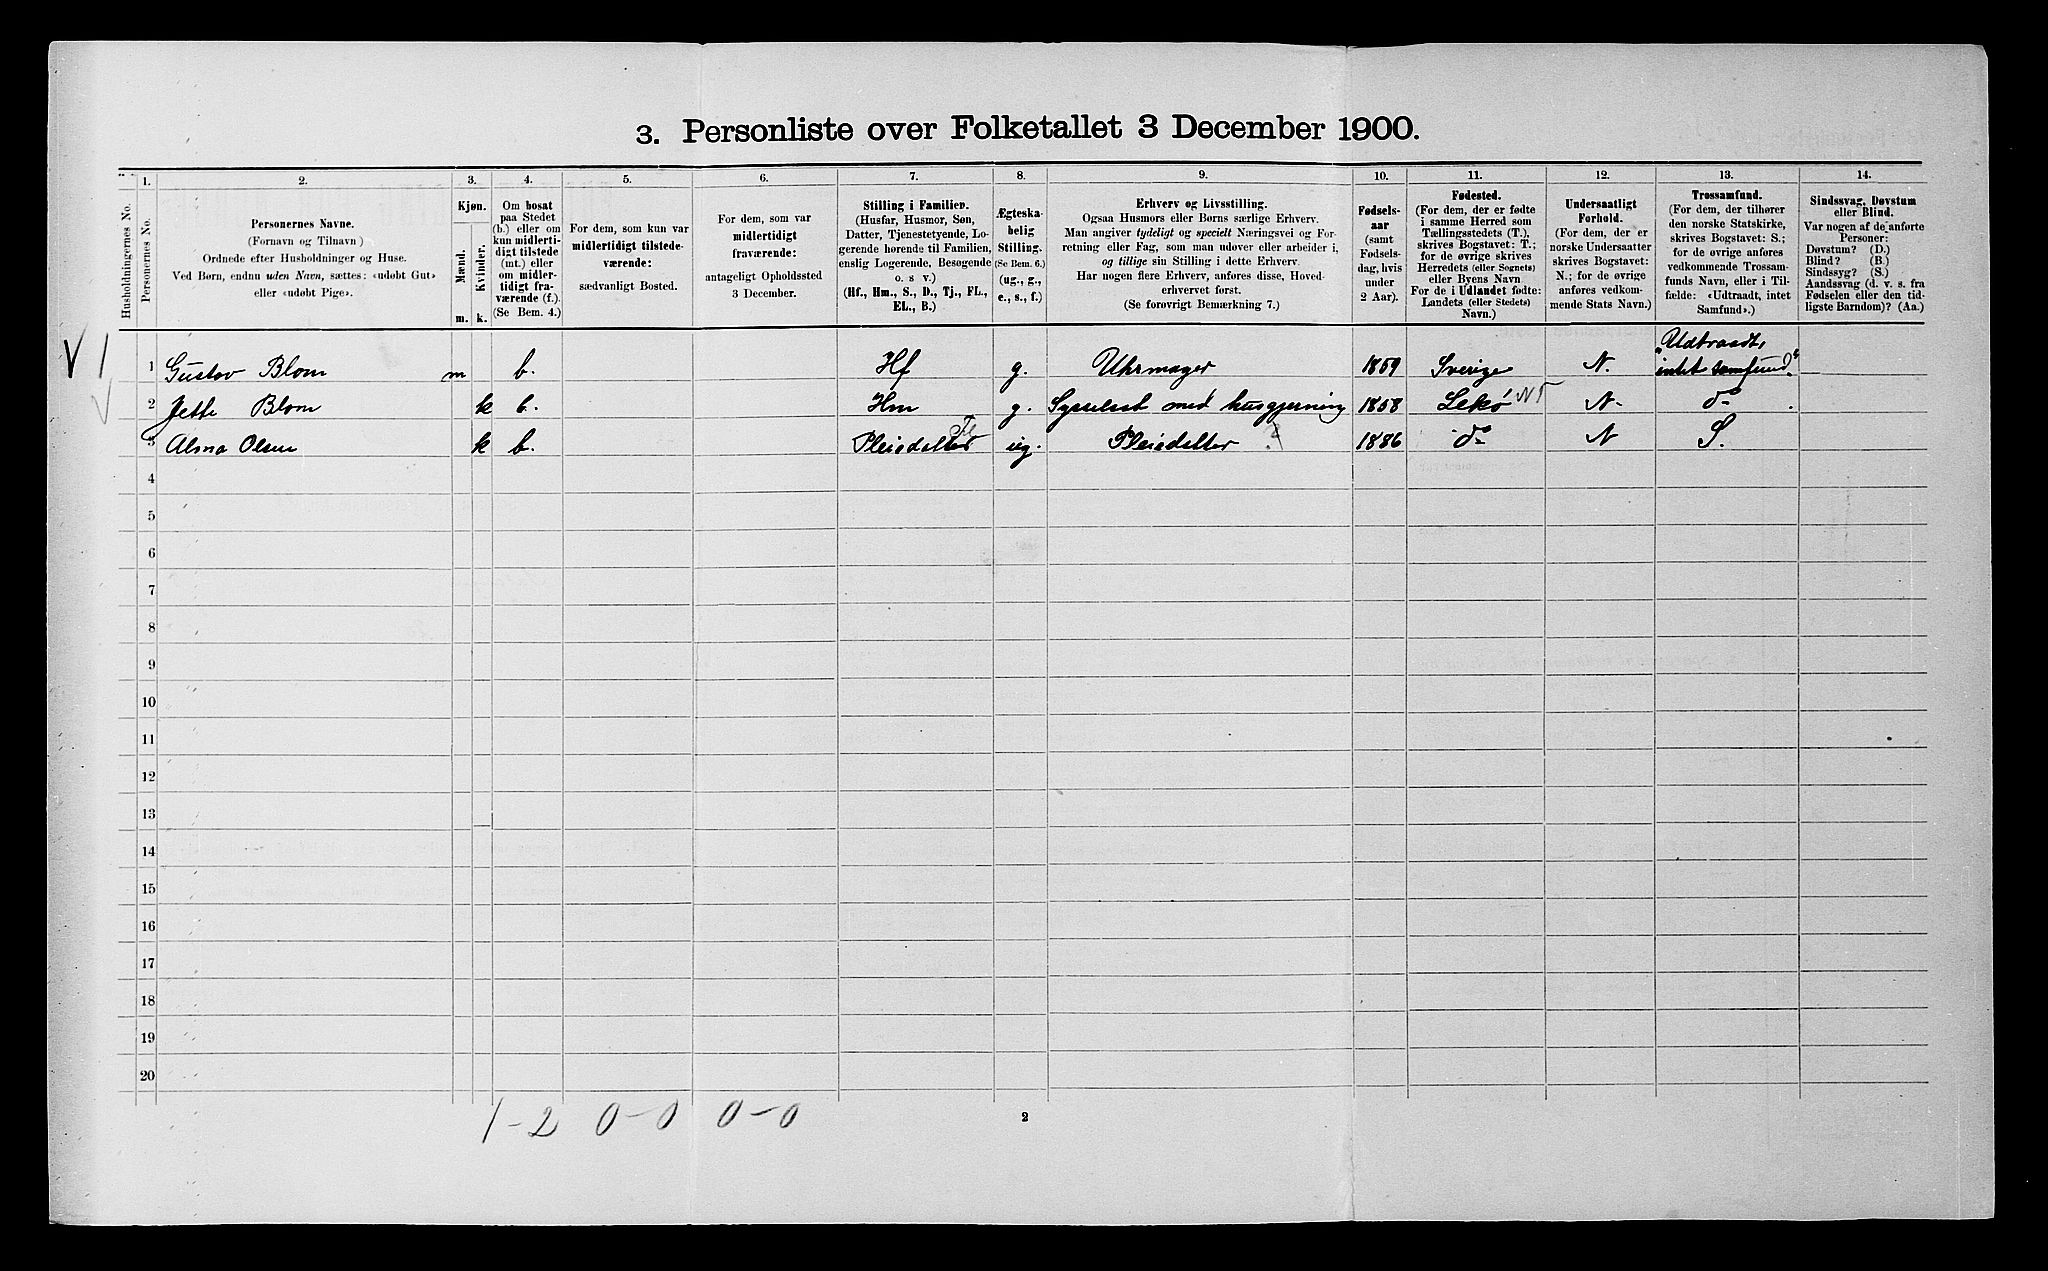 3. Personliste over Folketallet 3 December 1900.
1. 2. 3. 4. 5. 6. 7. 8. 9. 10. 11. 12. 13. 14.
Husholdningernes No.
Personernes No.
Personernes Navne.
(Fornavn og Tilnavn)
Ordnede efter Husholdninger og Huse.
Ved Børn, endnu uden Navn, sættes: «udøbt Gut»
eller «udøbt Pige».
Kjøn.
Mænd.
Kvinder.
m. k.
Om bosat
paa Stedet
(b.) eller om
kun midlerti-
digt tilstede
(mt.) eller
om midler-
tidigt fra-
værende (f.).
(Se Bem. 4.)
For dem, som kun var
midlertidigt tilstede-
værende:
sædvanligt Bosted.
For dem, som var
midlertidigt
fraværende:
antageligt Opholdssted
3 December.
Stilling i Familien.
(Husfar, Husmor, Søn,
Datter, Tjenestetyende, Lo-
gerende hørende til Familien,
enslig Logerende, Besøgende
o. s v.)
(Hf., Hm., S., D., Tj., FL.,
EL., B.)
Ægteska-
belig
Stilling.
(Se Bem. 6.)
(ug., g.,
e., s., f.)
Erhverv og Livsstilling.
Ogsaa Husmors eller Børns særlige Erhverv.
Man angiver tydeligt og specielt Næringsvei og For-
retning eller Fag, som man udøver eller arbeider i,
og tillige sin Stilling i dette Erhverv.
Har nogen flere Erhverv, anføres disse, Hoved-
erhvervet først.
(Se forøvrigt Bemærkning 7.)
Fødsels-
aar
(samt
Fødsels-
dag, hvis
under
2 Aar).
Fødested.
(For dem, der er fødte
i samme Herred som
Tællingsstedets (T.),
skrives Bogstavet: T.;
for de øvrige skrives
Herredets (eller Sognets)
eller Byens Navn
For de i Udlandet fødte:
Landets (eller Stedets)
Navn.)
Undersaatligt
Forhold.
(For dem, der er
norske Undersaatter
skrives Bogstavet:
N.; for de øvrige
anføres vedkom-
mende Stats Navn.)
Trossamfund.
(For dem, der tilhører
den norske Statskirke,
skrives Bogstavet: S.;
for de øvrige anføres
vedkommende Trossam-
funds Navn, eller i Til-
fælde: «Udtraadt, intet
Samfund».)
Sindssvag, Døvstum
eller Blind.
Var nogen af de anførte
Personer:
Døvstum? (D.)
Blind? (B.)
Sindssyg? (S.)
Aandssvag (d. v. s. fra
Fødselen eller den tid-
ligste Barndom)? (Aa.)
V 1
1 Gustav Blom m b. Hf g. Uhrmager 1859 Sverige N. "Udtraadt,
intet samfund"
2 Jette Blom k b. Hm g. Sysselsat med husgjerning 1858 Lekö NT N. do
3 Alma Olsen k b. Pleiedatter Fl ug. Pleiedatter ? 1886 do N S.
4
5
6
7
8
9
10
11
12
13
14
15
16
17
18
19
20
1-2 0-0 0-0
2